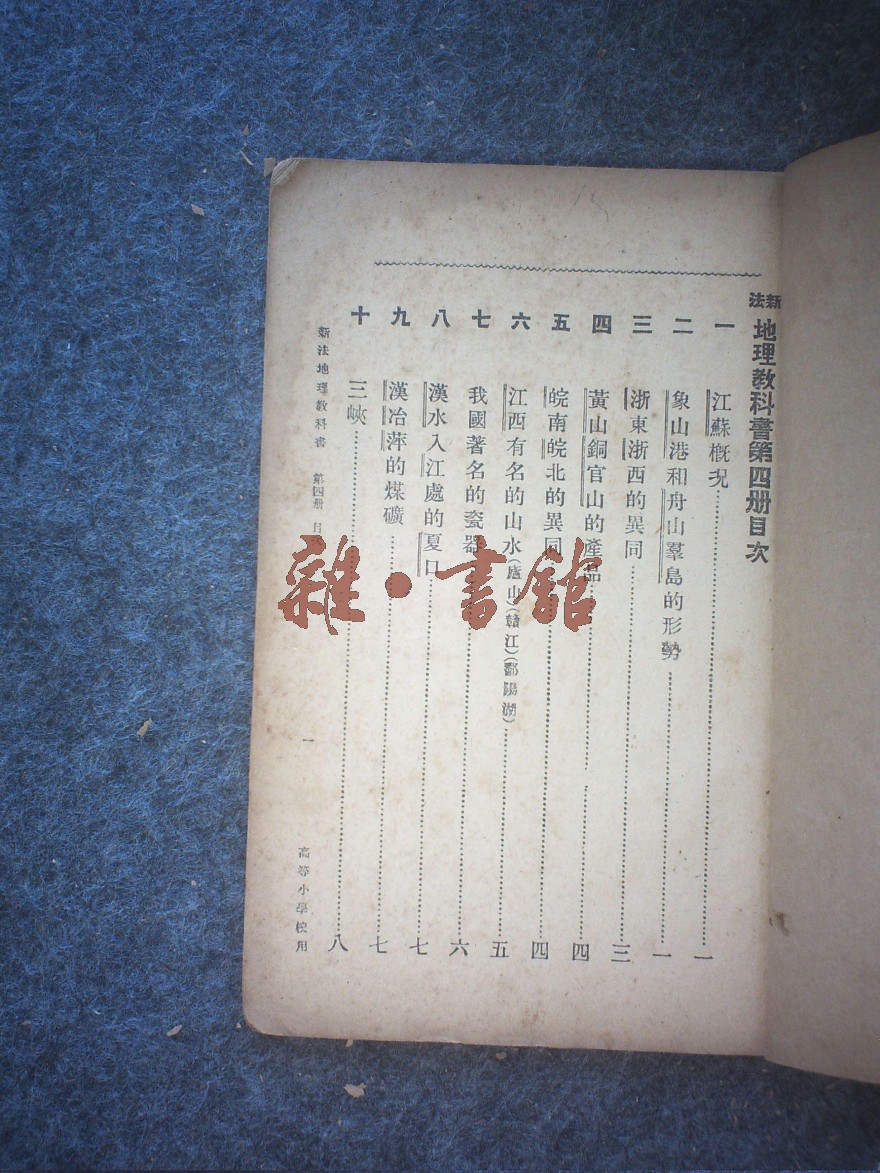 新法地理教科書第四册目次
一 江蘇概況……一
二 象山港和舟山羣島的形勢……一
三 浙東浙西的異同……三
四 黃山銅官山的產品……四
五 皖南皖北的異同……四
六 江西有名的山水(廬山)(贛江)(鄱陽湖)……五
七 我國著名的瓷器……六
八 漢水入江處的夏口……七
九 漢冶萍的煤礦……七
十 三峽……八
新法地理教科書 第四册 目 一 高等小學校用
雜·書館